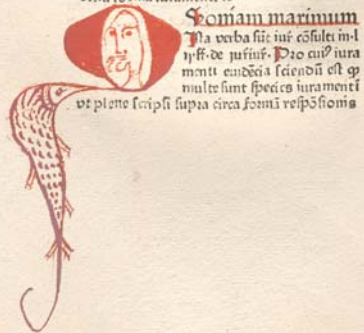 maximum
verba sūt iur̄ cōsulti in·l·
ff·de iur̄iur̄·Pro cuiꝰ iura
menti euidēcia sciendū est ꝙ
multe sunt species iuramenti
vt plene scripsi supra circa formā respōsionis